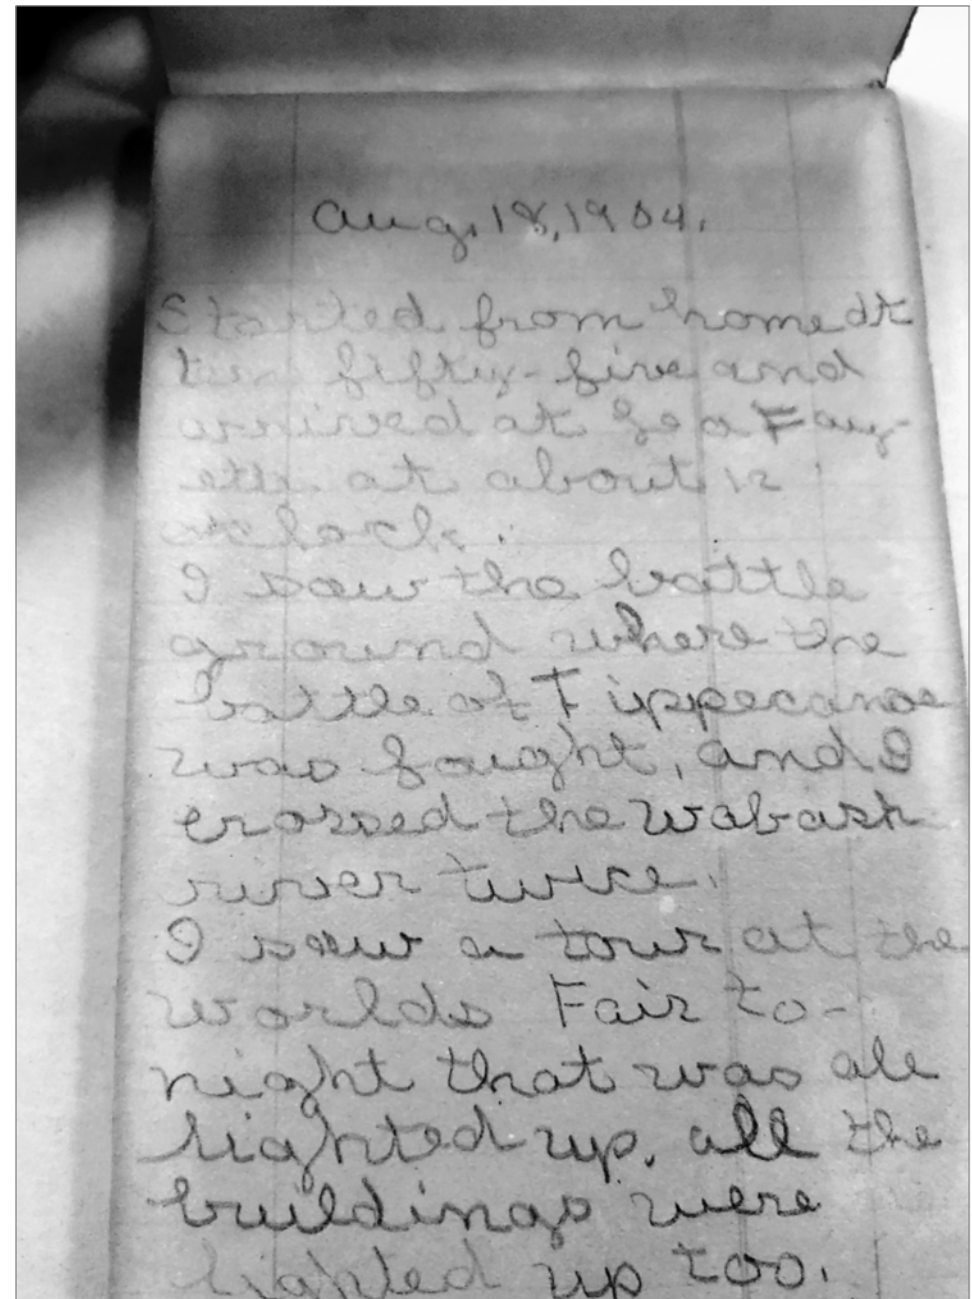 Aug. 18, 1904.
Started from home at
ten fifty-five and
arrived at La Fay-
ette at about 12
oclock.
I saw the battle
ground where the
battle of Tippecanoe
was fought, and I
crossed the Wabash
river twice.
I saw a tour at the
worlds Fair to-
night that was all
lighted up. all the
buildings were
lighted up too.